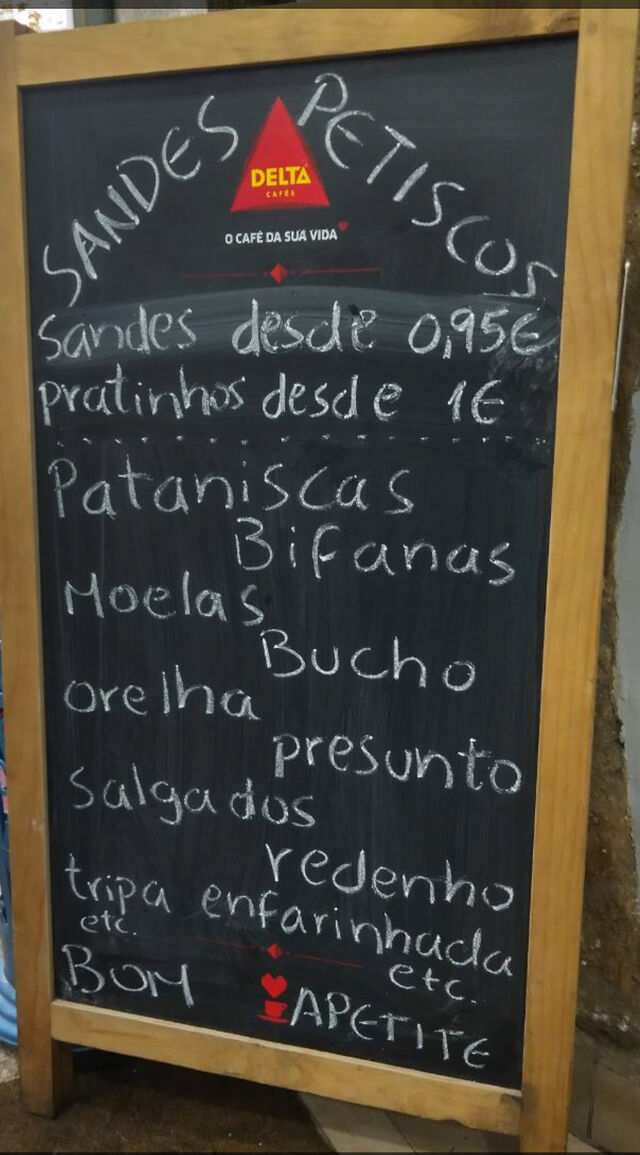 SANDES PETISCOS
DELTA
CAFÉS
O CAFÉ DA SUA VIDA
Sandes desde 0,95€
pratinhos desde 1€
Pataniscas
Bifanas
Moelas
Bucho
orelha
presunto
salgados
redenho
tripa enfarinhada
etc.
etc.
BOM APETITE